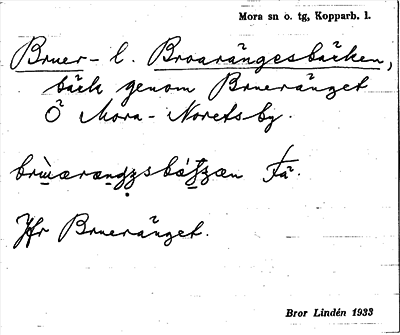 Mora sn o. tg, Kopparb. l.
Bruer- l. Broarängesbäcken,
bäck genom Brueränget
Ö Mora-Noretsby.
Få.
Jfr Brueränget.
Bror Lindén 1933